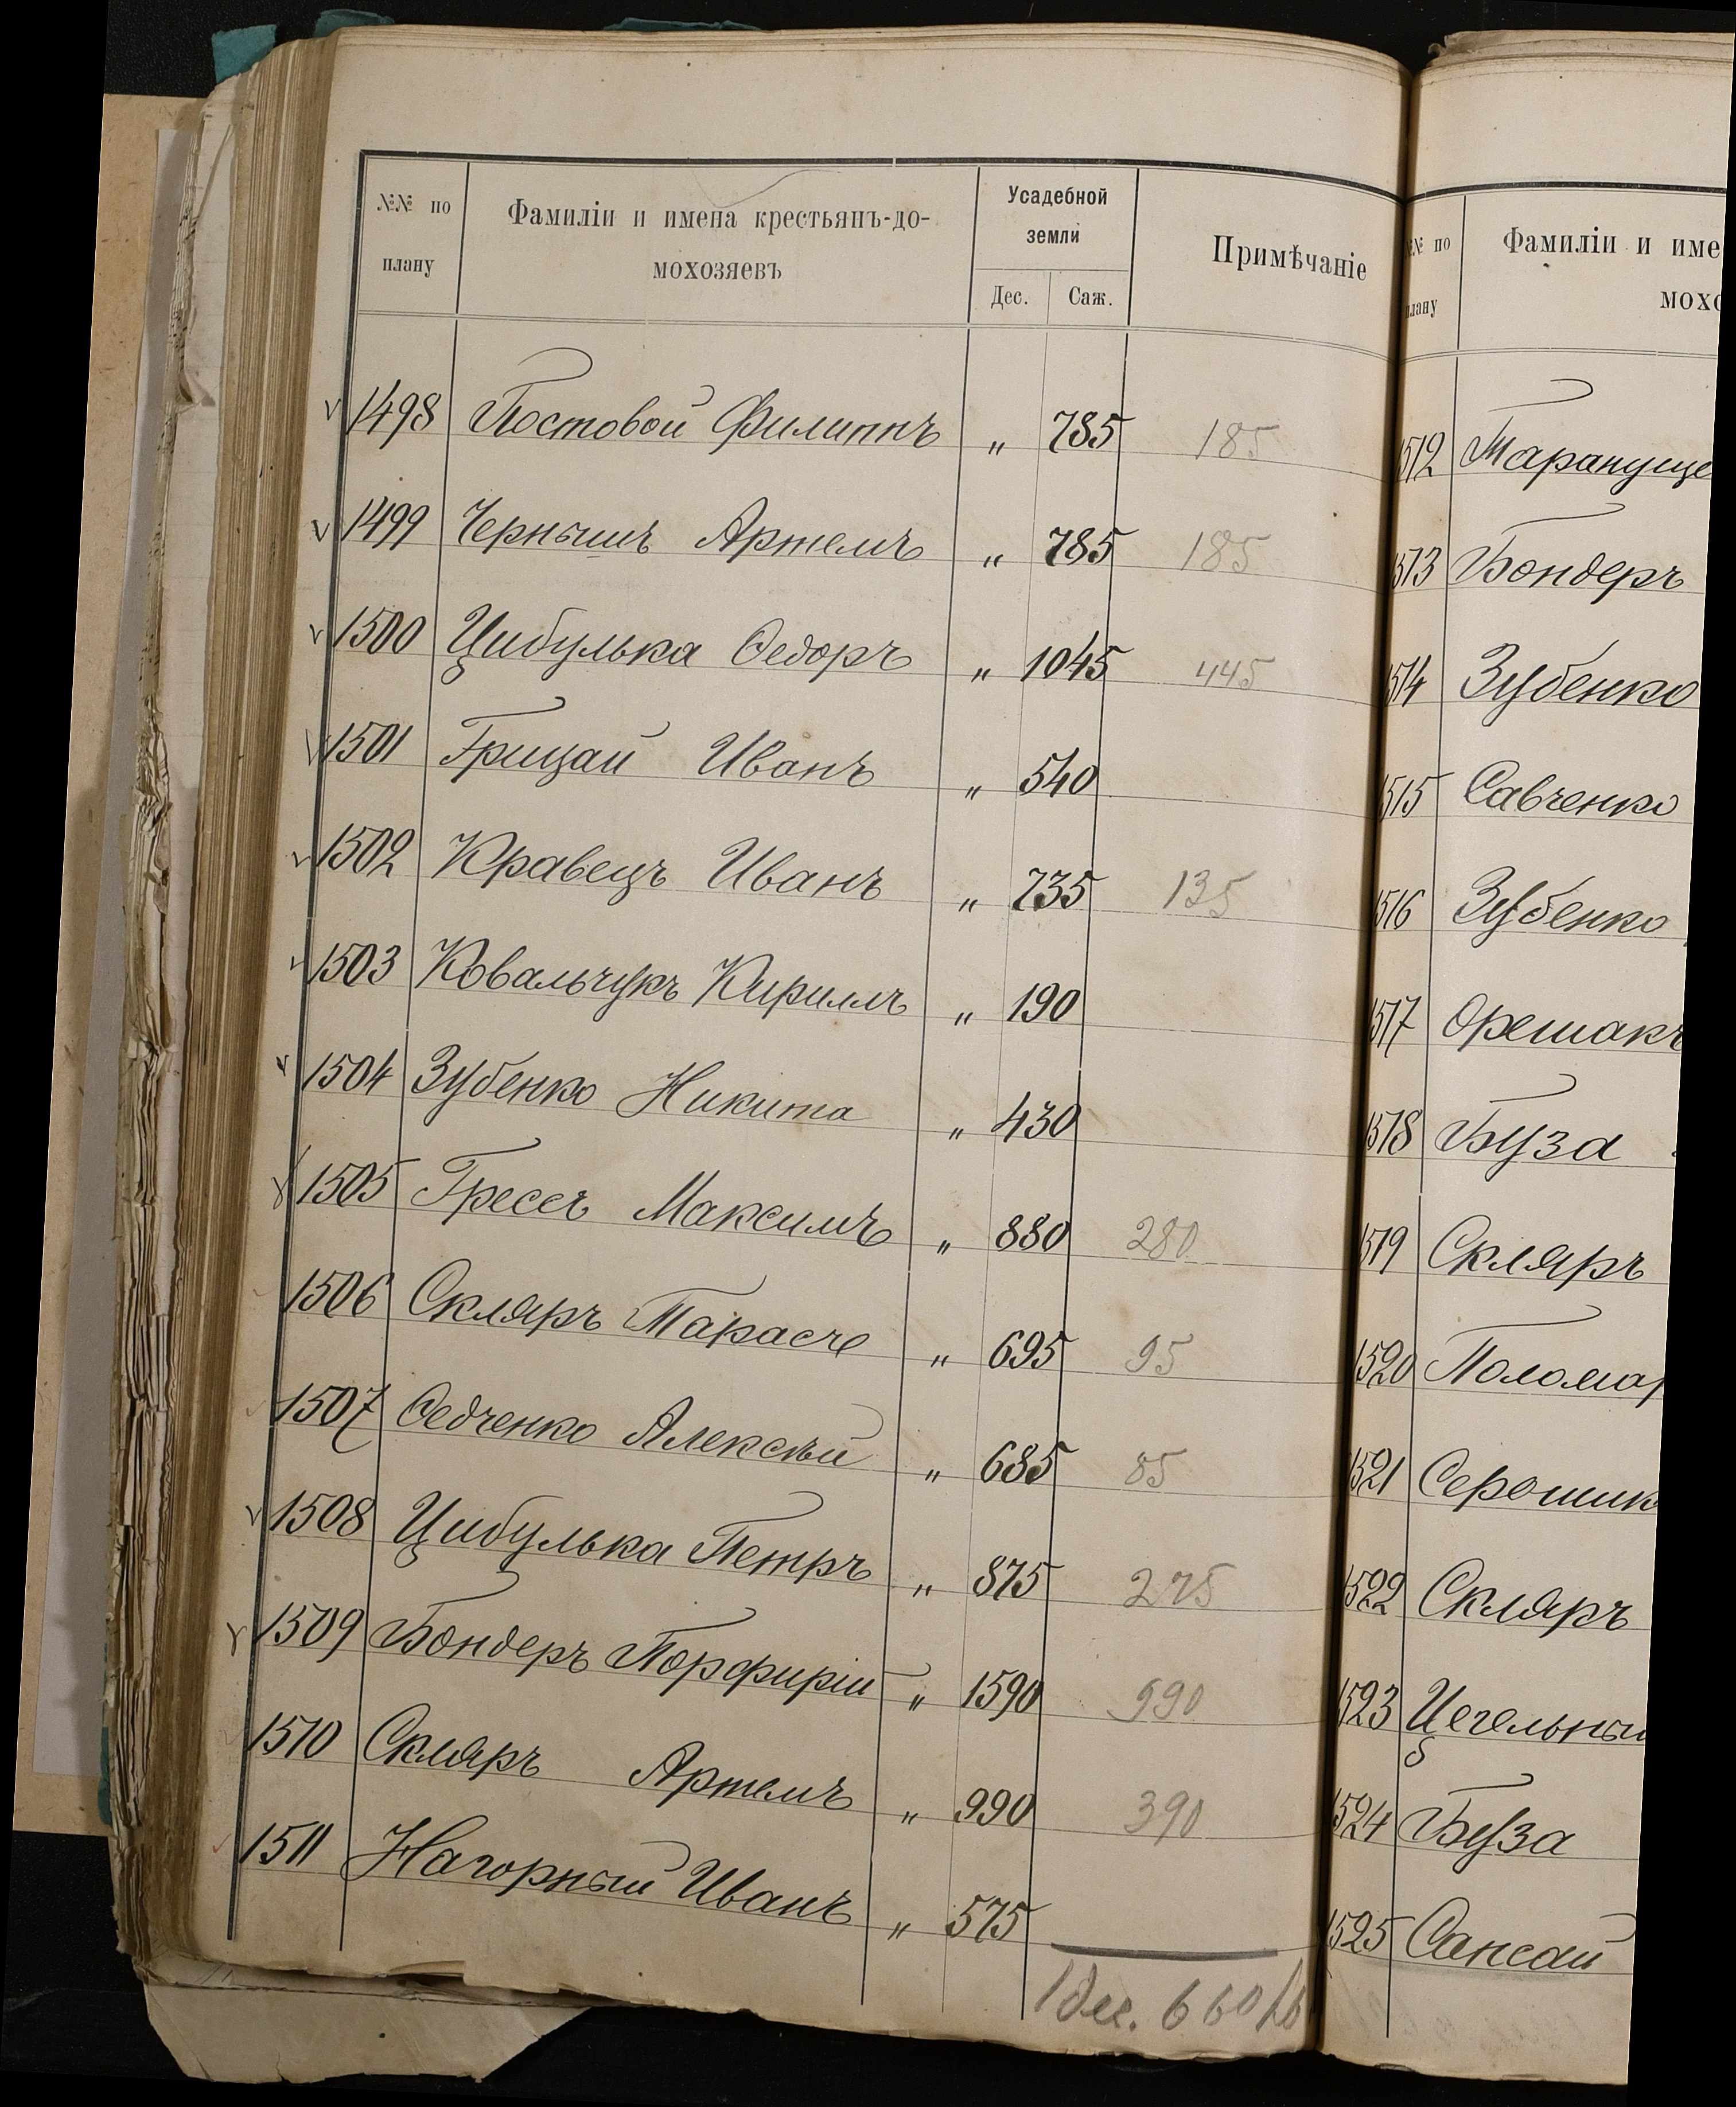 №№ по плану
Фамиліи и имена крестьянъ-до-
мохозяевъ
Усадебной
земли
Дес. Саж.
Примѣчаніе
1498 Постовой Филиппъ " 785 185
1499 Чернышъ Артемъ " 785 185
1500 Цибулька Ѳедоръ " 1045 445
1501 Грицай Иванъ " 540
1502 Кравецъ Иванъ " 735 135
1503 Ковальчукъ Кириллъ " 190
1504 Зубенко Никита " 430
1505 Гресь Максимъ " 880 280
1506 Скляръ Тарасъ " 695 95
1507 Федченко Алексѣй " 685 85
1508 Цибулька Петръ " 875 275
1509 Бондеръ Порфирій " 1590 990
1510 Скляръ Артемъ " 990 390
1511 Нагорный Иванъ " 575
1 дес. 660
№ по
плану
Фамиліи и име
мохо
1512 Тарануще
1513 Бондеръ
1514 Зубенко
1515 Савченко
1516 Зубенко
1517 Орешакъ
1518 Буза
1519 Скляръ
1520 Поломар
1521 Серошик
1522 Скляръ
1523 Цегельный
1524 Буза
1525 Сансай